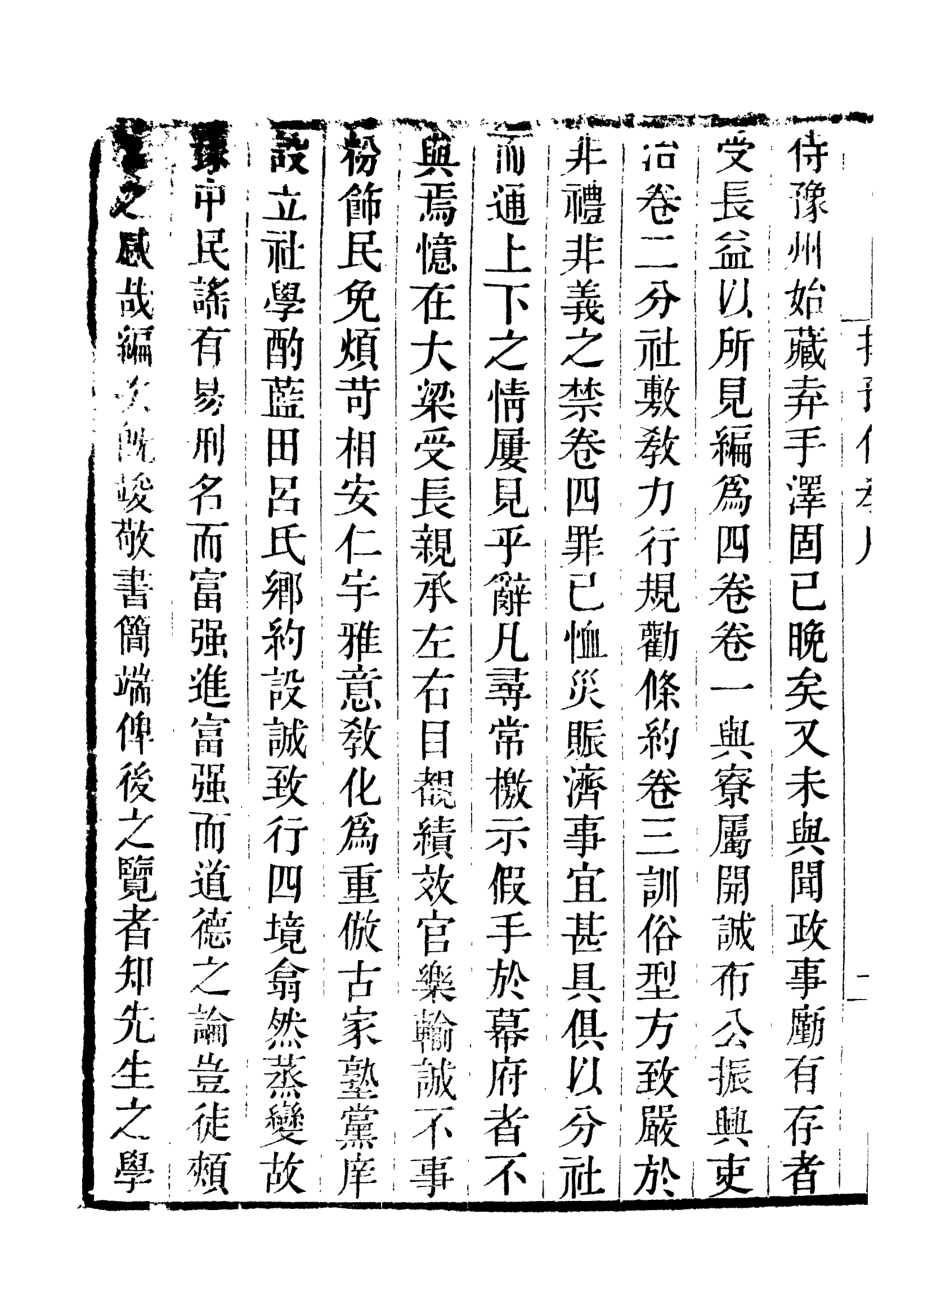 侍豫州始藏弆手澤固已晚矣又未與聞政事勵有存者
受長益以所見編爲四卷卷一與寮屬開誠布公振興吏
治卷二分社敷敎力行規勸條約卷三訓俗型方致嚴於
非禮非義之禁卷四罪已恤災賑濟事宜甚具俱以分社
而通上下之情屢見乎辭凡尋常檄示假手於幕府者不
與焉憶在大梁受長親承左右目覩績效官樂輸誠不事
粉飾民免煩苛相安仁宇雅意敎化爲重倣古家塾黨庠
設立社學酌藍田呂氏鄉約設誠致行四境翕然蒸變故
豫中民謠有易刑名而富强進富强而道德之論豈徒頰
之感哉編次旣竣敬書簡端俾後之覽者知先生之學
二